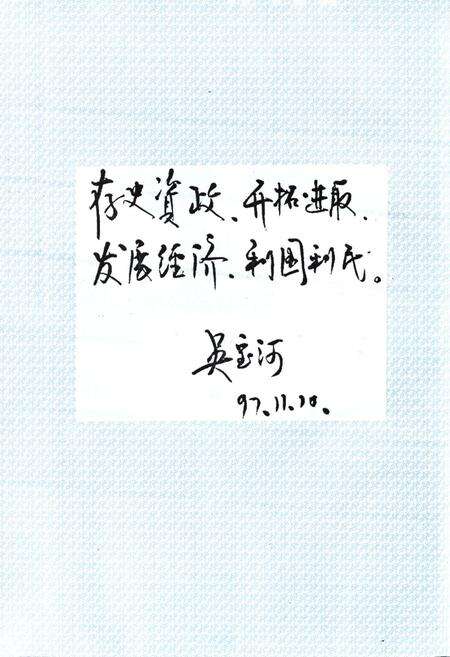 存史資政、开拓进取、
发展经济、利国利民。
吴宝河
97.11.10.